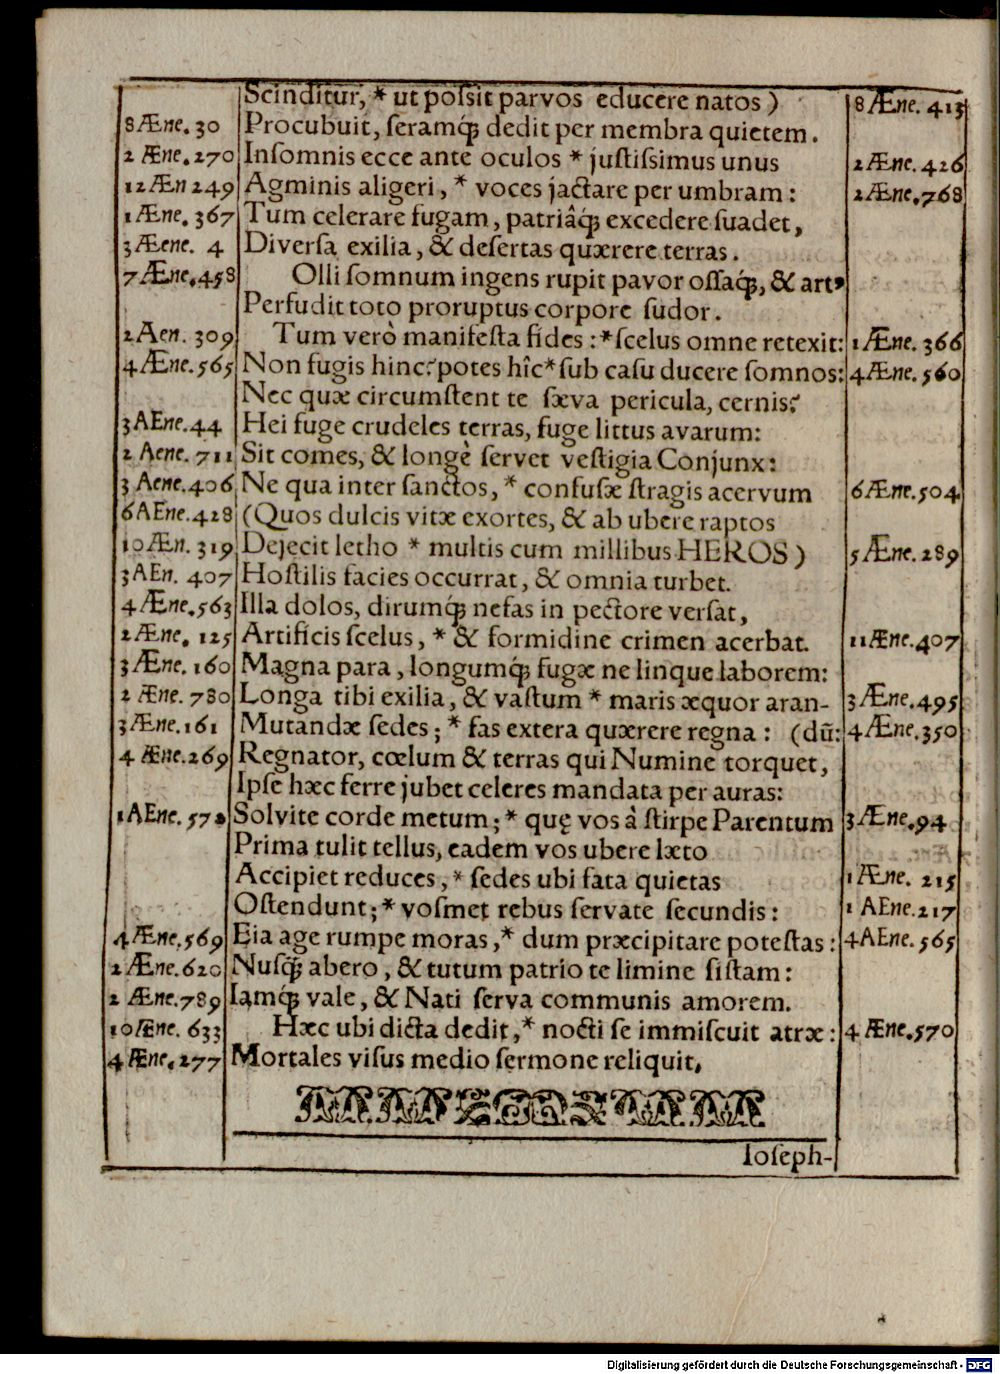 Scinditur, * ut poſsit parvos educere natos ) 8 Æne. 413
8 Æne. 30 Procubuit, ſeramq́; dedit per membra quietem.
2 Æne. 270 Inſomnis ecce ante oculos * juſtiſsimus unus 2 Æne. 426
12 Æn 249 Agminis aligeri, * voces jactare per umbram: 2 Æne. 768
1 Æne. 367 Tum celerare fugam, patriâq́; excedere ſuadet,
3 Æene. 4 Diverſa exilia, & deſertas quærere terras.
7 Æne. 458 Olli ſomnum ingens rupit pavor oſſaq́;, & art9
Perfudit toto proruptus corpore ſudor.
2 Aen. 309 Tum verò manifeſta fides: * ſcelus omne retexit: 1 Æne. 366
4 Æne. 565 Non fugis hinc? potes hîc * ſub caſu ducere ſomnos: 4 Æne. 560
Nec quæ circumſtent te ſæva pericula, cernis?
3 AEne. 44 Hei fuge crudeles terras, fuge littus avarum:
2 Aene. 711 Sit comes, & longè ſervet veſtigia Conjunx:
3 Aene. 406 Ne qua inter ſanctos, * confuſæ ſtragis acervum 6 Æne. 504
6 AEne. 428 (Quos dulcis vitæ exortes, & ab ubere raptos
10 Æn. 319 Dejecit letho * multis cum millibus HEROS ) 5 Æne. 289
3 AEn. 407 Hoſtilis facies occurrat, & omnia turbet.
4 Æne. 563 Illa dolos, dirumq́; nefas in pectore verſat,
2 Æne. 125 Artificis ſcelus, * & formidine crimen acerbat. 11 Æne. 407
3 Æne. 160 Magna para, longumq́; fugæ ne linque laborem:
2 Æne. 780 Longa tibi exilia, & vaſtum * maris æquor aran- 3 Æne. 495
3 Æne. 161 Mutandæ ſedes; * fas extera quærere regna: (dũ: 4 Æne. 350
4 Æne. 269 Regnator, cœlum & terras qui Numine torquet,
Ipſe hæc ferre jubet celeres mandata per auras:
1 AEne. 572 Solvite corde metum; * quę vos à ſtirpe Parentum 3 Æne. 94
Prima tulit tellus, eadem vos ubere læto
Accipiet reduces, * ſedes ubi fata quietas 1 Æne. 215
Oſtendunt; * voſmet rebus ſervate ſecundis: 1 AEne. 217
4 Æne. 569 Eia age rumpe moras, * dum præcipitare poteſtas: 4 AEne. 565
2 Æne. 620 Nuſq̃; abero, & tutum patrio te limine ſiſtam:
2 Æne. 789 Iamq́; vale, & Nati ſerva communis amorem.
10 Æne. 633 Hæc ubi dicta dedit, * nocti ſe immiſcuit atræ: 4 Æne. 570
4 Æne. 277 Mortales viſus medio ſermone reliquit,
Ioſeph-
Digitalisierung gefördert durch die Deutsche Forschungsgemeinschaft - DFG